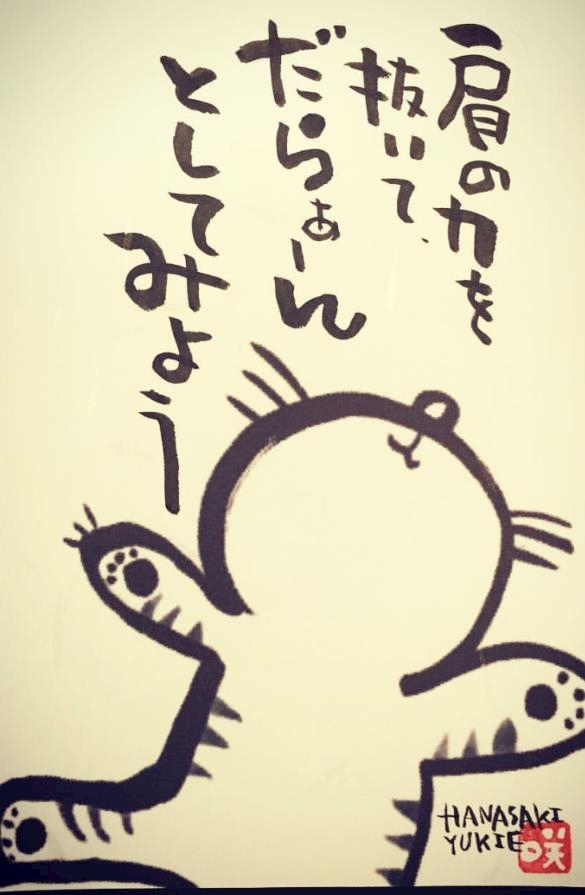 肩の力を
抜いて、
だらぁーん
としてみよう
HANASAKI
YUKIE
咲